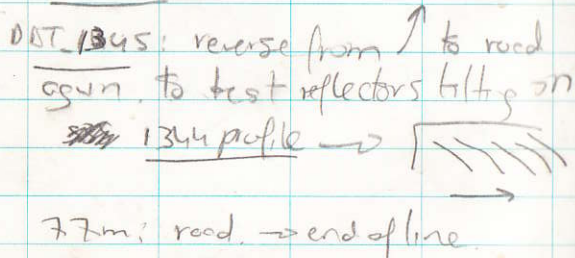 DAT_1345: reverse from ↑ to road
again. to test reflectors tilting on
1344 profile →
77m: road. → end of line